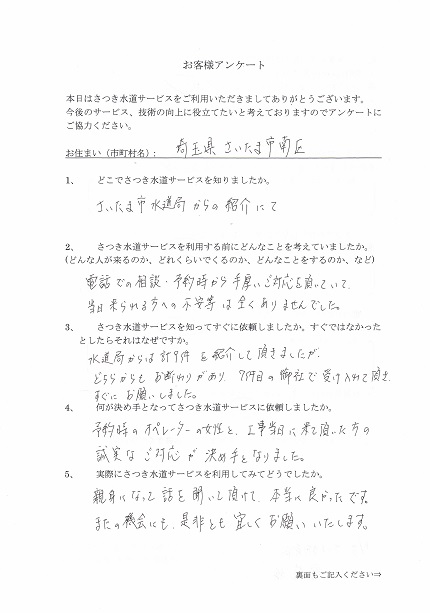 お客様アンケート
本日はさつき水道サービスをご利用いただきましてありがとうございます。
今後のサービス、技術の向上に役立てたいと考えておりますのでアンケートに
ご協力ください。
お住まい（市町村名）： 埼玉県 さいたま市南区
1、 どこでさつき水道サービスを知りましたか。
さいたま市水道局からの紹介にて
2、 さつき水道サービスを利用する前にどんなことを考えていましたか。
(どんな人が来るのか、どれくらいでくるのか、どんなことをするのか、など)
電話での相談・予約時から手厚いご対応を頂いていて、
当日来られる方への不安等は全くありませんでした。
3、 さつき水道サービスを知ってすぐに依頼しましたか。すぐではなかった
としたらそれはなぜですか。
水道局からは計9件を紹介して頂きましたが、
どちらからもお断わりがあり、9件目の御社で受け入れて頂き、
すぐにお願いしました。
4、 何が決め手となってさつき水道サービスに依頼しましたか。
予約時のオペレーターの女性と、工事当日に来て頂いた方の
誠実なご対応が決め手となりました。
5、 実際にさつき水道サービスを利用してみてどうでしたか。
親身になって話を聞いて頂けて、本当に良かったです。
またの機会にも、是非とも宜しくお願いいたします。
裏面もご記入ください⇒